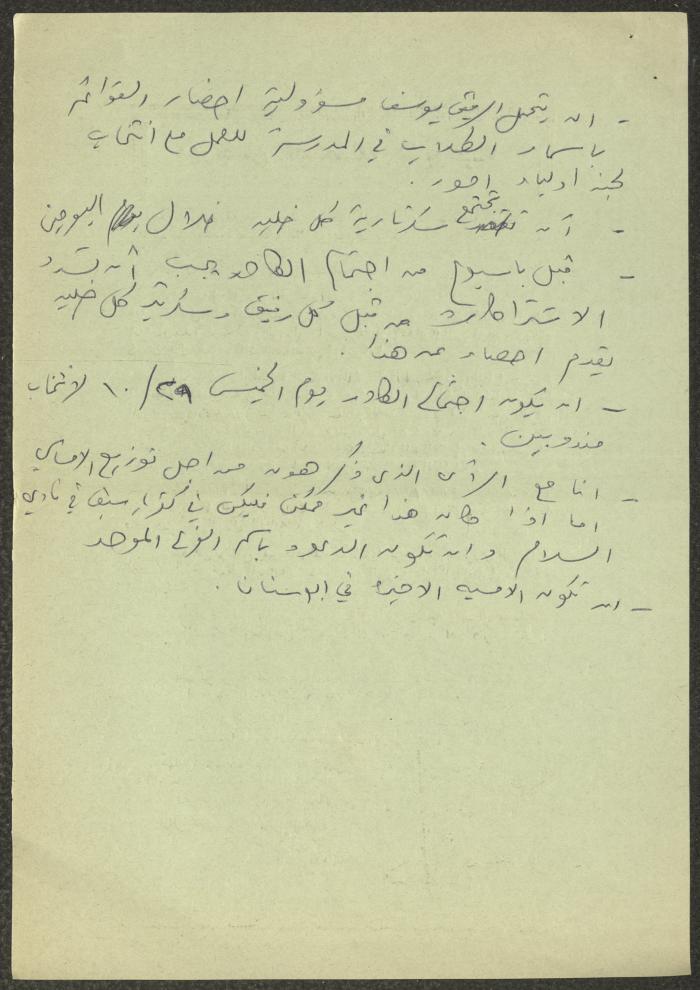 - ان يتحمل الرفيق يوسف مسؤولية احضار القوائم
باسماء الطلاب في المدرسة للعمل مع انتخاب
لجنة اولياء امور .
- ان تجتمع سكرتارية كل خليه خلال اليومين
- قبل باسبوع من اجتماع الكادر يجب أن تسدد
الاشتراكات من قبل كل رفيق وسكرتير كل خليه
يقدم احصاء عن هذا .
- ان يكون اجتماع الكادر يوم الخميس ٢٩/١٠ لانتخاب
مندوبين .
- انا مع الرأي الذي ذكر هون من اجل توزيع الاماسي
اما اذا كان هذا غير ممكن فليكن في في نادي
السلام وان تكون الدعوه باسم الفرع الموحد
- ان تكون الامسيه الاخيره في .